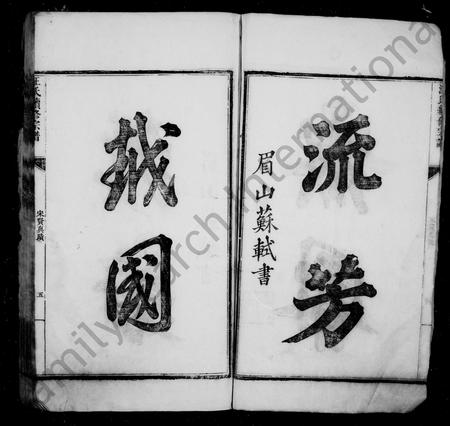 流芳
眉山蘇軾書
越國
宋賢真蹟
五
FamilySearch International